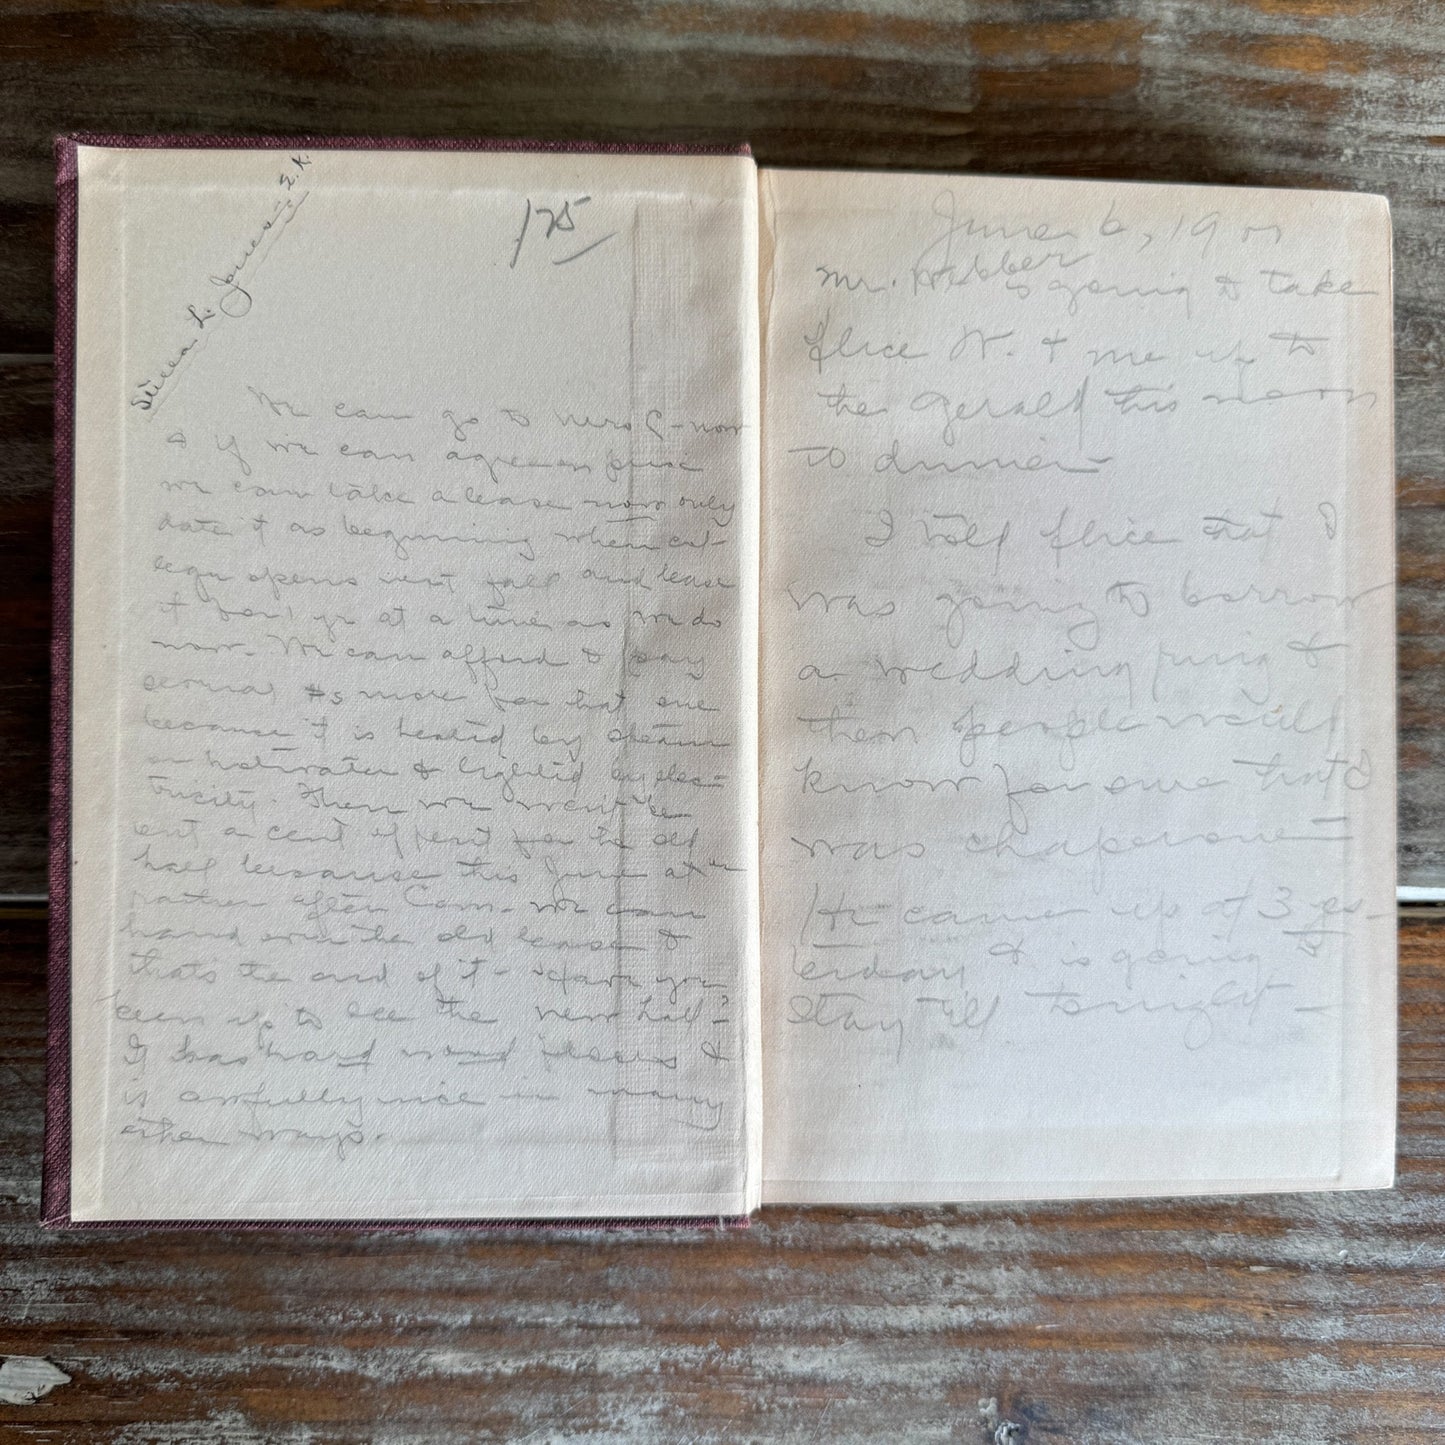 L. Jones, S.K.
175
We can go to now
& if we can agree on price
we can take a lease now only
date it as beginning when col-
lege opens next fall and lease
it for 1 yr at a time as we do
now. We can afford to pay
several $s more for that one
because it is heated by steam
or hotwater & lighted by elec-
tricity. Then we won't be
out a cent of rent for the old
hall because this June at or
rather after Com. we can
hand over the old lease &
that's the end of it - Have you
been up to see the new hall?
It has hard wood floors &
is awfully nice in many
other ways.
June 6, 19
Mr. Webber is going to take
W. & me up to
the Gerald this noon
to dinner -
I told that I
was going to borrow
a wedding ring &
then people would
know for sure that I
was chaperone -
He came up at 3 yes-
terday & is going to
stay 'till tonight -